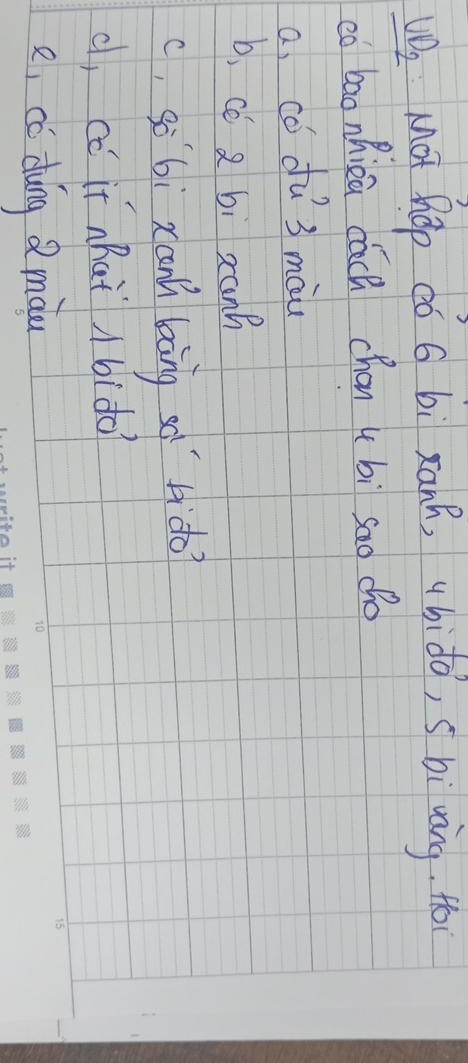 VD2: Một hộp có 6 bi xanh, 4 bi đỏ, 5 bi vàng. Hỏi
có bao nhiêu cách chọn 4 bi sao cho
a, có đủ 3 màu
b, có 2 bi xanh
c, số bi xanh bằng số bi đỏ
d, có ít nhất 1 bi đỏ
e, có đúng 2 màu
5
10
15
Just write it